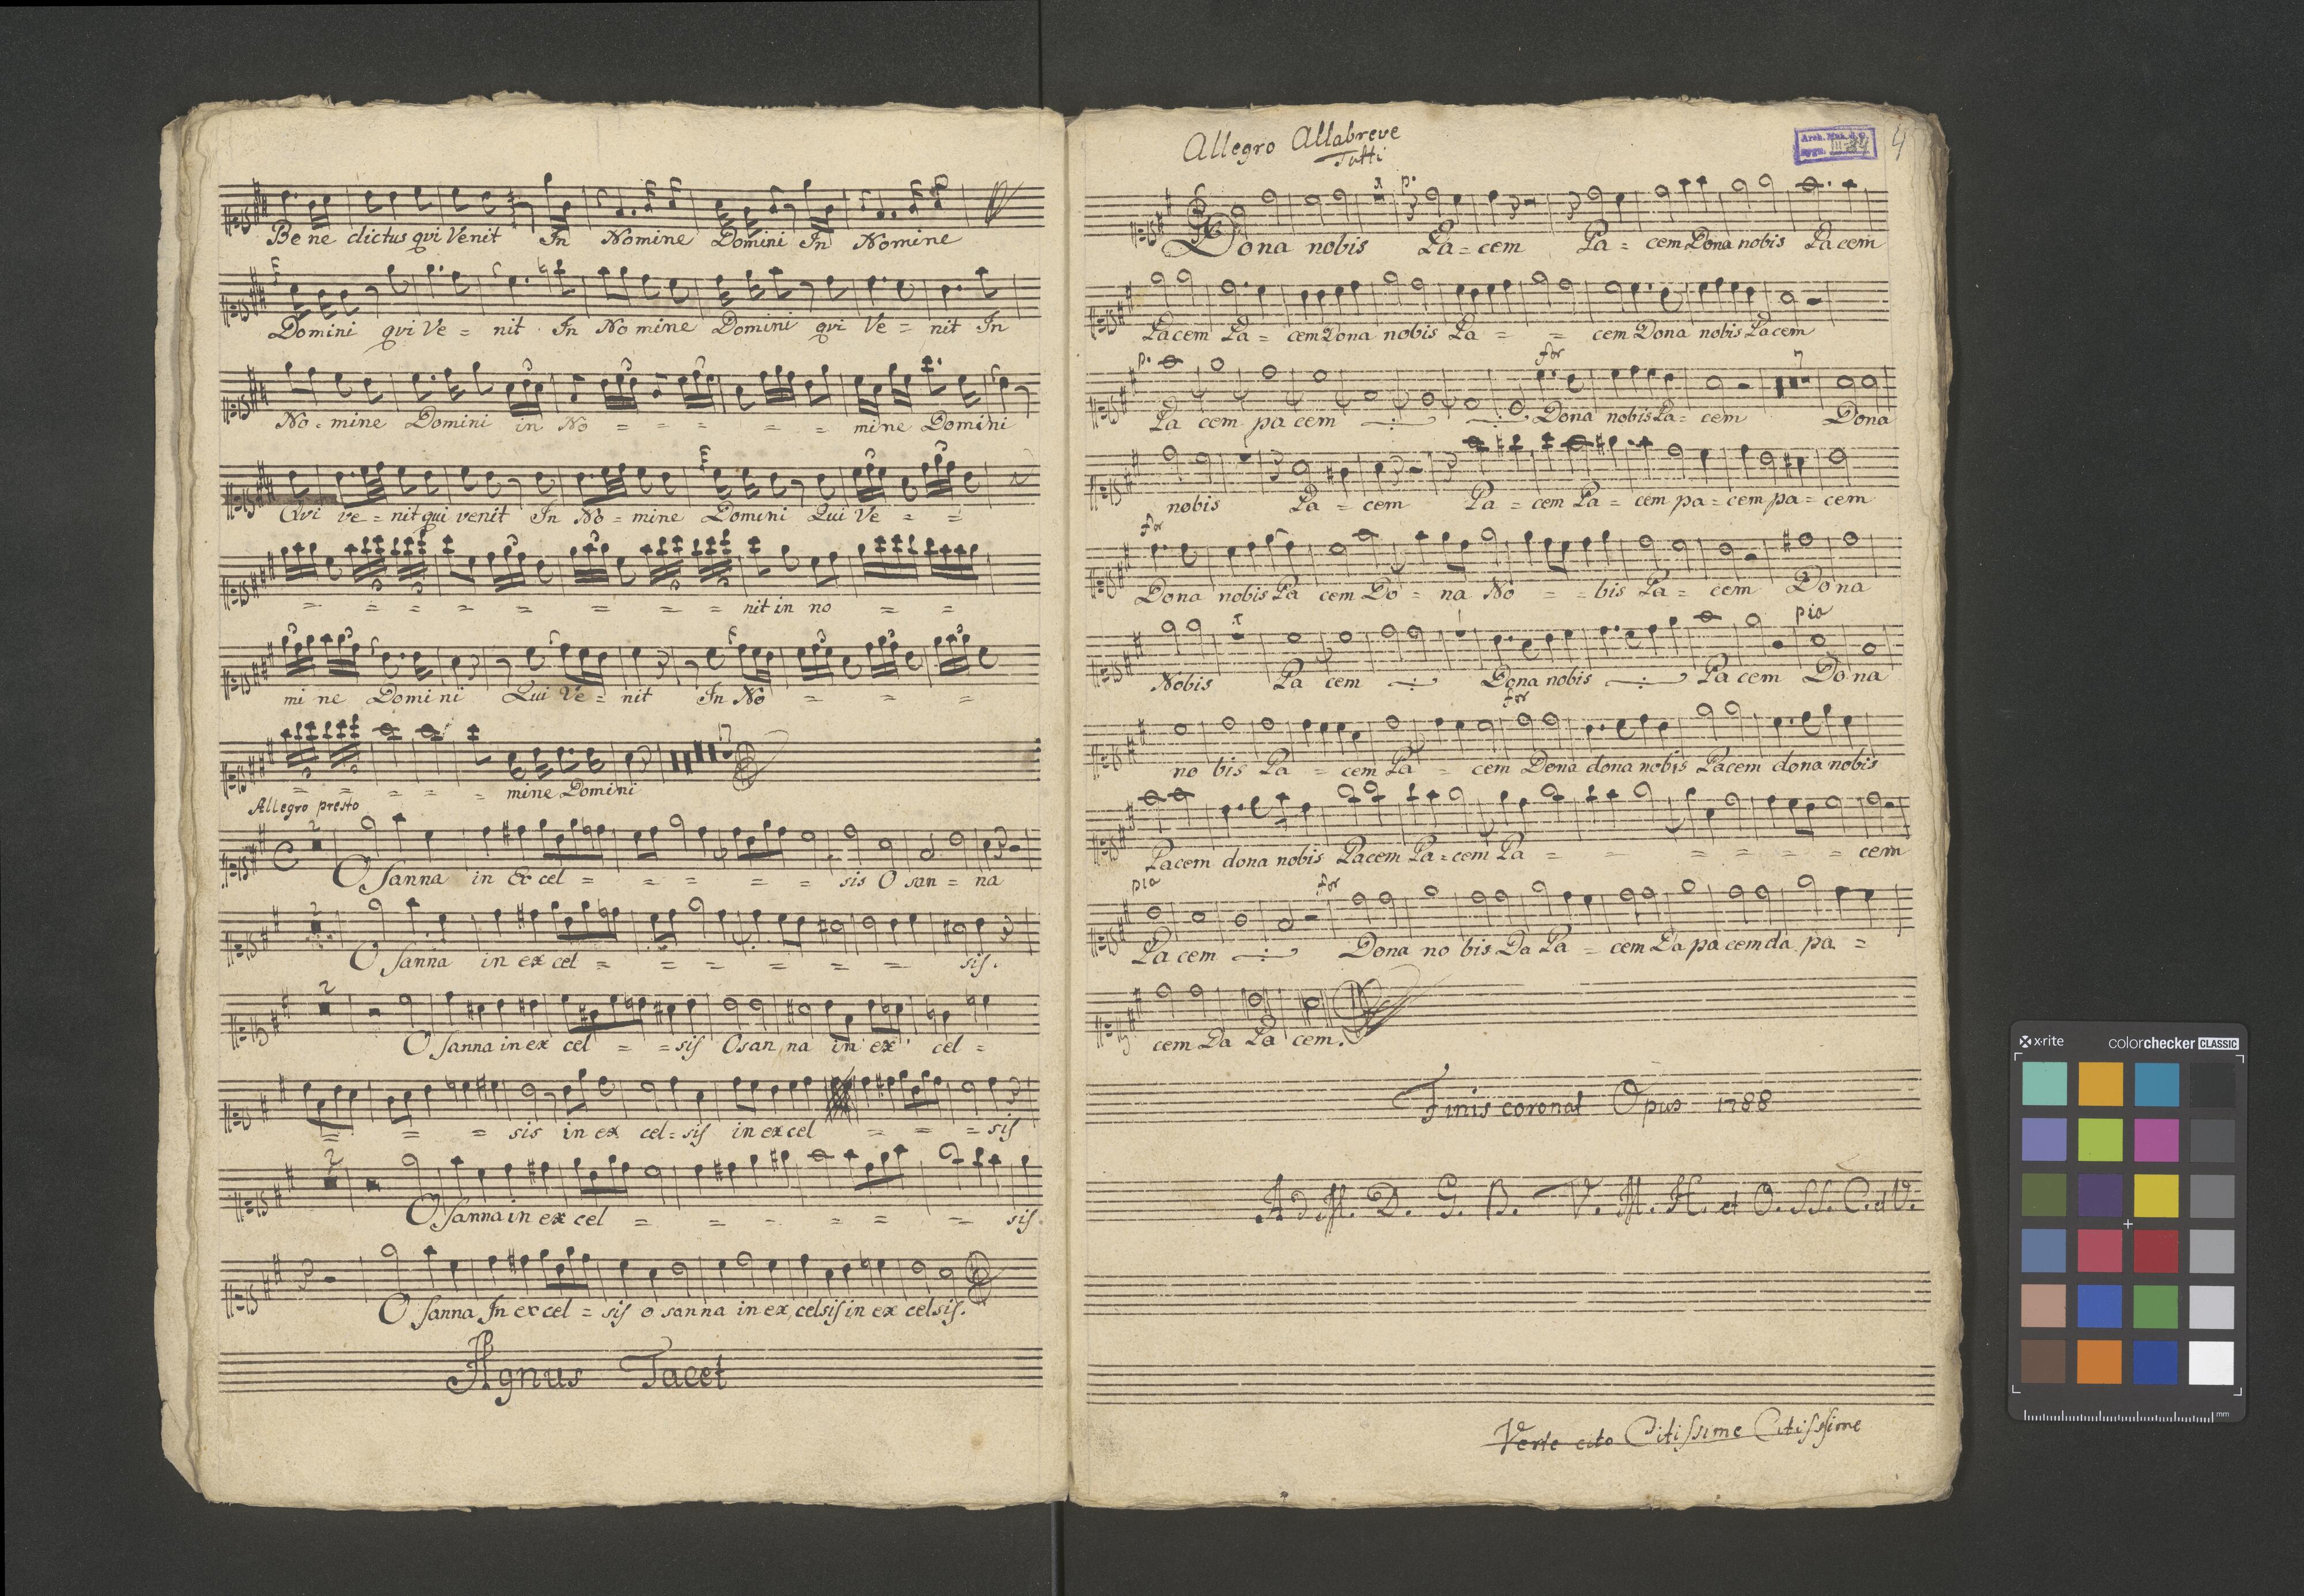 Bene dictus qui Venit In Nomine Domini In Nomine
Domini qui Ve = nit In No mine Domini qui Ve = nit In
No = mine Domini in No = = = = = mine Domini
Qvi ve = nit qui venit In No = mine Domini Qui Ve = =
= = = = = = = = nit in no = =
mi ne Domi ni Qui Ve = nit In No = = =
= = = = = mine Domini
Allegro presto
2
O Sanna in Ex cel = = = = = sis O san = na
2
O Sanna in ex cel = = = = = = sis.
2
O Sanna in ex cel = = sis Osan na in ex cel =
= = = sis in ex cel = sis in ex cel = = = sis
2
O Sanna in ex cel = = = = = = sis.
O Sanna In ex cel = sis o sanna in ex celsis in ex celsis.
Agnus Tacet
Allegro Allabreve
Tutti
4
Dona nobis Pa = cem Pa = cem Dona nobis Pa cem
Pacem Pa = cem Dona nobis Pa = = cem Dona nobis Pacem
p. for 7
Pa cem pa cem Dona nobis Pa = cem Dona
nobis Pa = cem Pa = cem Pa = cem pa = cem pa = cem
for
Dona nobis Pa cem Do = na No = = bis Pa = cem Do na
pia
Nobis Pa cem Dona nobis Pa cem Do na
for
no bis Pa = cem Pa = cem Dona dona nobis Pacem dona nobis
Pacem dona nobis Pacem Pa = cem Pa = = = = = cem
pia for
Pa cem Dona no bis Da Pa = cem Da pa cem da pa =
cem Da Pa cem.
Finis coronat Opus 1788
Ad M. D. G. B. V. M. H. et O. SS. C. et V.
Verte cito Citissime Citissime
x-rite colorchecker CLASSIC
mm